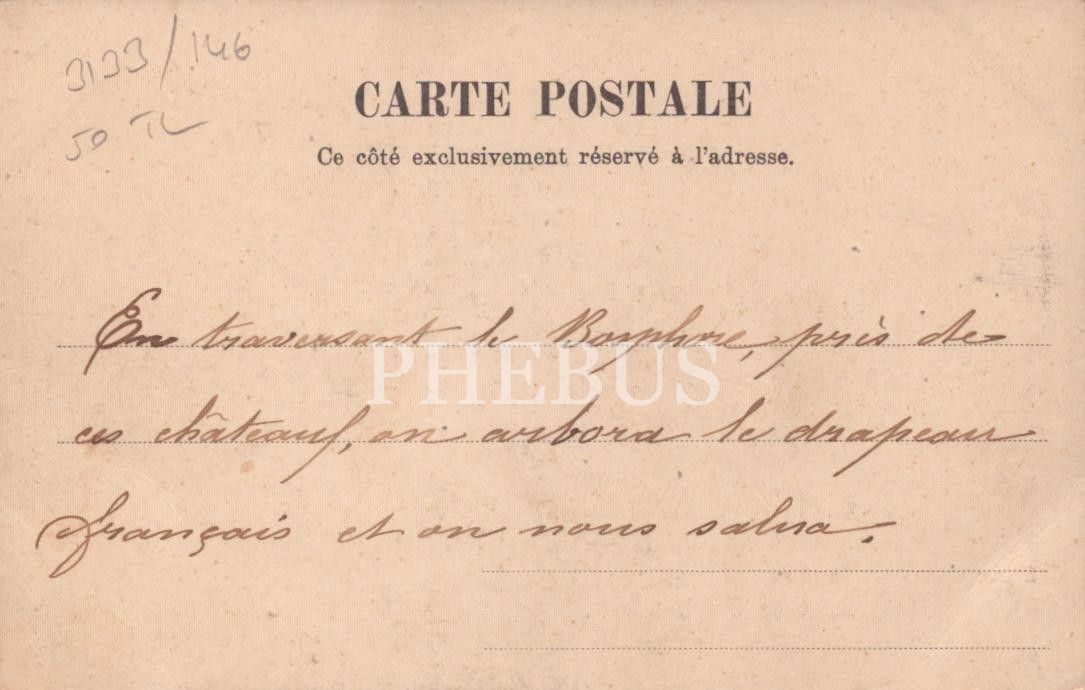 3133/146
50 TL
CARTE POSTALE
Ce côté exclusivement réservé à l'adresse.
En traversant le Bosphore, près de
ces châteaux, on arbora le drapeau
français et on nous salua.
PHEBUS